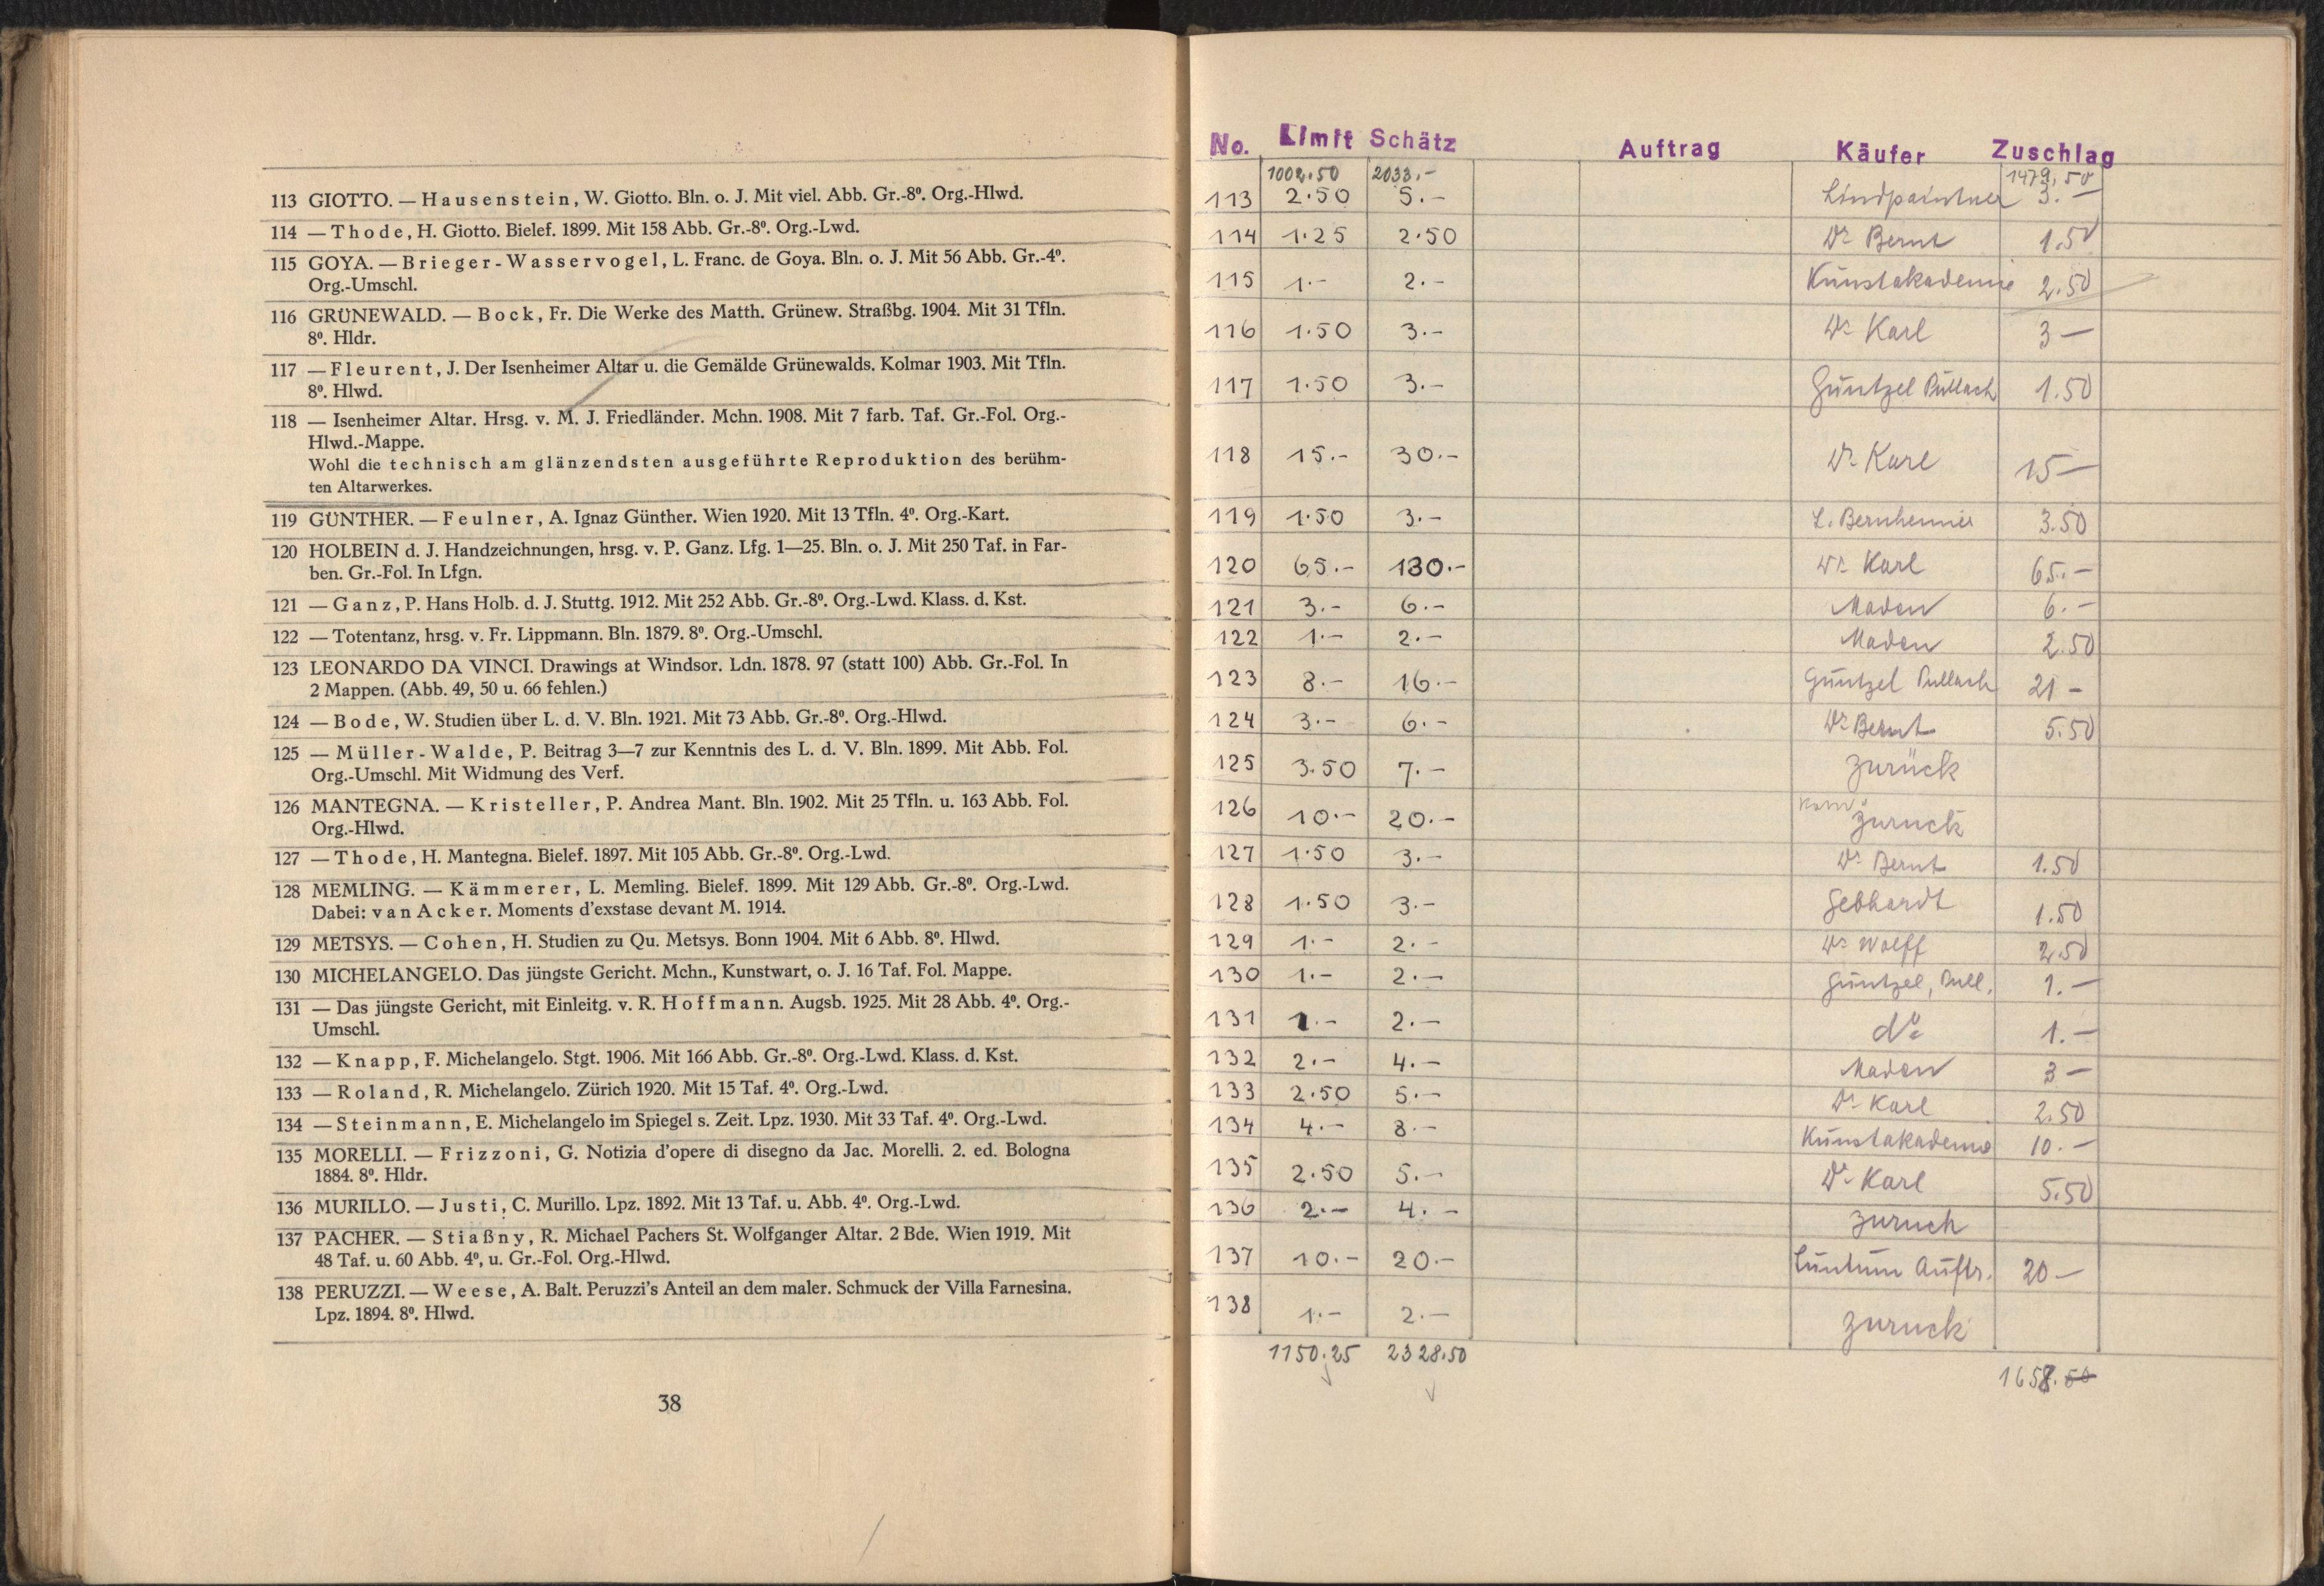 113 GIOTTO. — Hausenstein, W. Giotto. Bln. o. J. Mit viel. Abb. Gr.-8⁰. Org.-Hlwd.
114 — Thode, H. Giotto. Bielef. 1899. Mit 158 Abb. Gr.-8⁰. Org.-Lwd.
115 GOYA. — Brieger-Wasservogel, L. Franc. de Goya. Bln. o. J. Mit 56 Abb. Gr.-4⁰.
Org.-Umschl.
116 GRÜNEWALD. — Bock, Fr. Die Werke des Matth. Grünew. Straßbg. 1904. Mit 31 Tfln.
8⁰. Hldr.
117 — Fleurent, J. Der Isenheimer Altar u. die Gemälde Grünewalds. Kolmar 1903. Mit Tfln.
8⁰. Hlwd.
118 — Isenheimer Altar. Hrsg. v. M. J. Friedländer. Mchn. 1908. Mit 7 farb. Taf. Gr.-Fol. Org.-
Hlwd.-Mappe.
Wohl die technisch am glänzendsten ausgeführte Reproduktion des berühm-
ten Altarwerkes.
119 GÜNTHER. — Feulner, A. Ignaz Günther. Wien 1920. Mit 13 Tfln. 4⁰. Org.-Kart.
120 HOLBEIN d. J. Handzeichnungen, hrsg. v. P. Ganz. Lfg. 1—25. Bln. o. J. Mit 250 Taf. in Far-
ben. Gr.-Fol. In Lfgn.
121 — Ganz, P. Hans Holb. d. J. Stuttg. 1912. Mit 252 Abb. Gr.-8⁰. Org.-Lwd. Klass. d. Kst.
122 — Totentanz, hrsg. v. Fr. Lippmann. Bln. 1879. 8⁰. Org.-Umschl.
123 LEONARDO DA VINCI. Drawings at Windsor. Ldn. 1878. 97 (statt 100) Abb. Gr.-Fol. In
2 Mappen. (Abb. 49, 50 u. 66 fehlen.)
124 — Bode, W. Studien über L. d. V. Bln. 1921. Mit 73 Abb. Gr.-8⁰. Org.-Hlwd.
125 — Müller-Walde, P. Beitrag 3—7 zur Kenntnis des L. d. V. Bln. 1899. Mit Abb. Fol.
Org.-Umschl. Mit Widmung des Verf.
126 MANTEGNA. — Kristeller, P. Andrea Mant. Bln. 1902. Mit 25 Tfln. u. 163 Abb. Fol.
Org.-Hlwd.
127 — Thode, H. Mantegna. Bielef. 1897. Mit 105 Abb. Gr.-8⁰. Org.-Lwd.
128 MEMLING. — Kämmerer, L. Memling. Bielef. 1899. Mit 129 Abb. Gr.-8⁰. Org.-Lwd.
Dabei: van Acker. Moments d'exstase devant M. 1914.
129 METSYS. — Cohen, H. Studien zu Qu. Metsys. Bonn 1904. Mit 6 Abb. 8⁰. Hlwd.
130 MICHELANGELO. Das jüngste Gericht. Mchn., Kunstwart, o. J. 16 Taf. Fol. Mappe.
131 — Das jüngste Gericht, mit Einleitg. v. R. Hoffmann. Augsb. 1925. Mit 28 Abb. 4⁰. Org.-
Umschl.
132 — Knapp, F. Michelangelo. Stgt. 1906. Mit 166 Abb. Gr.-8⁰. Org.-Lwd. Klass. d. Kst.
133 — Roland, R. Michelangelo. Zürich 1920. Mit 15 Taf. 4⁰. Org.-Lwd.
134 — Steinmann, E. Michelangelo im Spiegel s. Zeit. Lpz. 1930. Mit 33 Taf. 4⁰. Org.-Lwd.
135 MORELLI. — Frizzoni, G. Notizia d'opere di disegno da Jac. Morelli. 2. ed. Bologna
1884. 8⁰. Hldr.
136 MURILLO. — Justi, C. Murillo. Lpz. 1892. Mit 13 Taf. u. Abb. 4⁰. Org.-Lwd.
137 PACHER. — Stiaßny, R. Michael Pachers St. Wolfganger Altar. 2 Bde. Wien 1919. Mit
48 Taf. u. 60 Abb. 4⁰, u. Gr.-Fol. Org.-Hlwd.
138 PERUZZI. — Weese, A. Balt. Peruzzi's Anteil an dem maler. Schmuck der Villa Farnesina.
Lpz. 1894. 8⁰. Hlwd.
38
No. Limit Schätz Auftrag Käufer Zuschlag
1002.50 2033.- 1479.50
113 2.50 5.- Lindpaintner 3.-
114 1.25 2.50 Dr Bernt 1.50
115 1.- 2.- Kunstakademie 2.50
116 1.50 3.- Dr Karl 3-
117 1.50 3.- Güntzel Pullach 1.50
118 15.- 30.- Dr Karl 15-
119 1.50 3.- L. Bernheimer 3.50
120 65.- 130.- Dr Karl 65.-
121 3.- 6.- Maden 6.-
122 1.- 2.- Maden 2.50
123 8.- 16.- Güntzel Pullach 21-
124 3.- 6.- Dr Bernt 5.50
125 3.50 7.- zurück
126 10.- 20.- zurück
127 1.50 3.- Dr Bernt 1.50
128 1.50 3.- Gebhardt 1.50
129 1.- 2.- Dr Wolff 2.50
130 1.- 2.- Güntzel, Pull. 1.-
131 1.- 2.- do 1.-
132 2.- 4.- Maden 3-
133 2.50 5.- Dr Karl 2.50
134 4.- 8.- Kunstakademie 10.-
135 2.50 5.- Dr Karl 5.50
136 2.- 4.- zurück
137 10.- 20.- Auftr. 20-
138 1.- 2.- zurück
1150.25 2328.50
1658.50